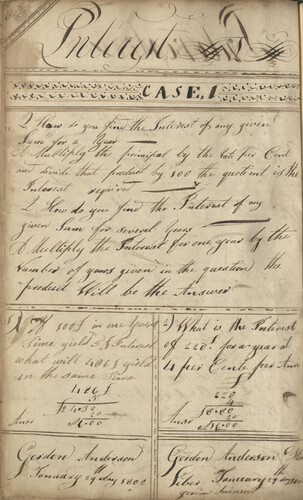 Interest
CASE, 1
Q How do you find the Interest of any given
Sum for a Year
A Multiply the principal by the rate per Cent
and divide that product by 100 the quotient is the
Interest required
Q How do you find the Interest of any
given Sum for several Years
A Multiply the Interest for one year by the
Number of years given in the question the
product Will be the Answer
1) If 100$ in one Year
Time yield 5 $ Interest
what will 486$ yield
in the same Time
486$
5
$24.30
Answr
Gordon Anderson
January 29 day 1800
2) What is the Interest
of 220$ for a year at
4 per Cente per Ann
220
4
$8.80
Answr
Gordon Anderson
January 29th day